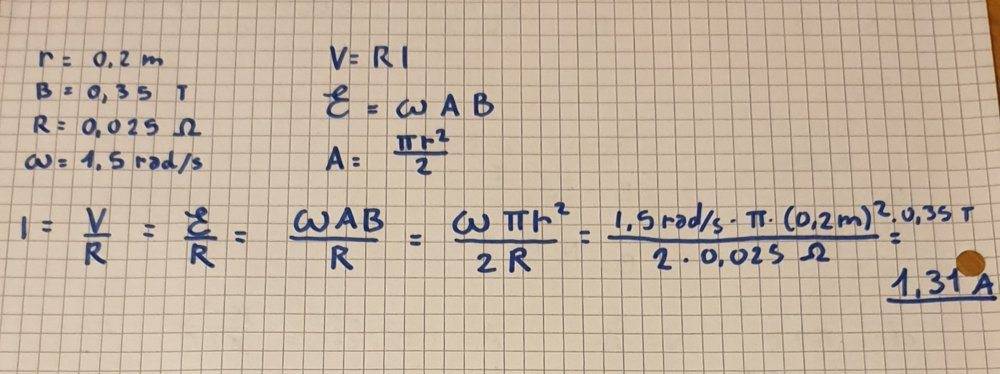 r = 0,2 m
B = 0,35 T
R = 0,025 Ω
ω = 1.5 rad/s
V = R I
ℰ = ω A B
A = πr²/2
I = V/R = ℰ/R = ωAB/R = ωπr²/2R = 1,5 rad/s · π · (0,2m)² · 0,35 T / 2 · 0,025 Ω =
1,31 A